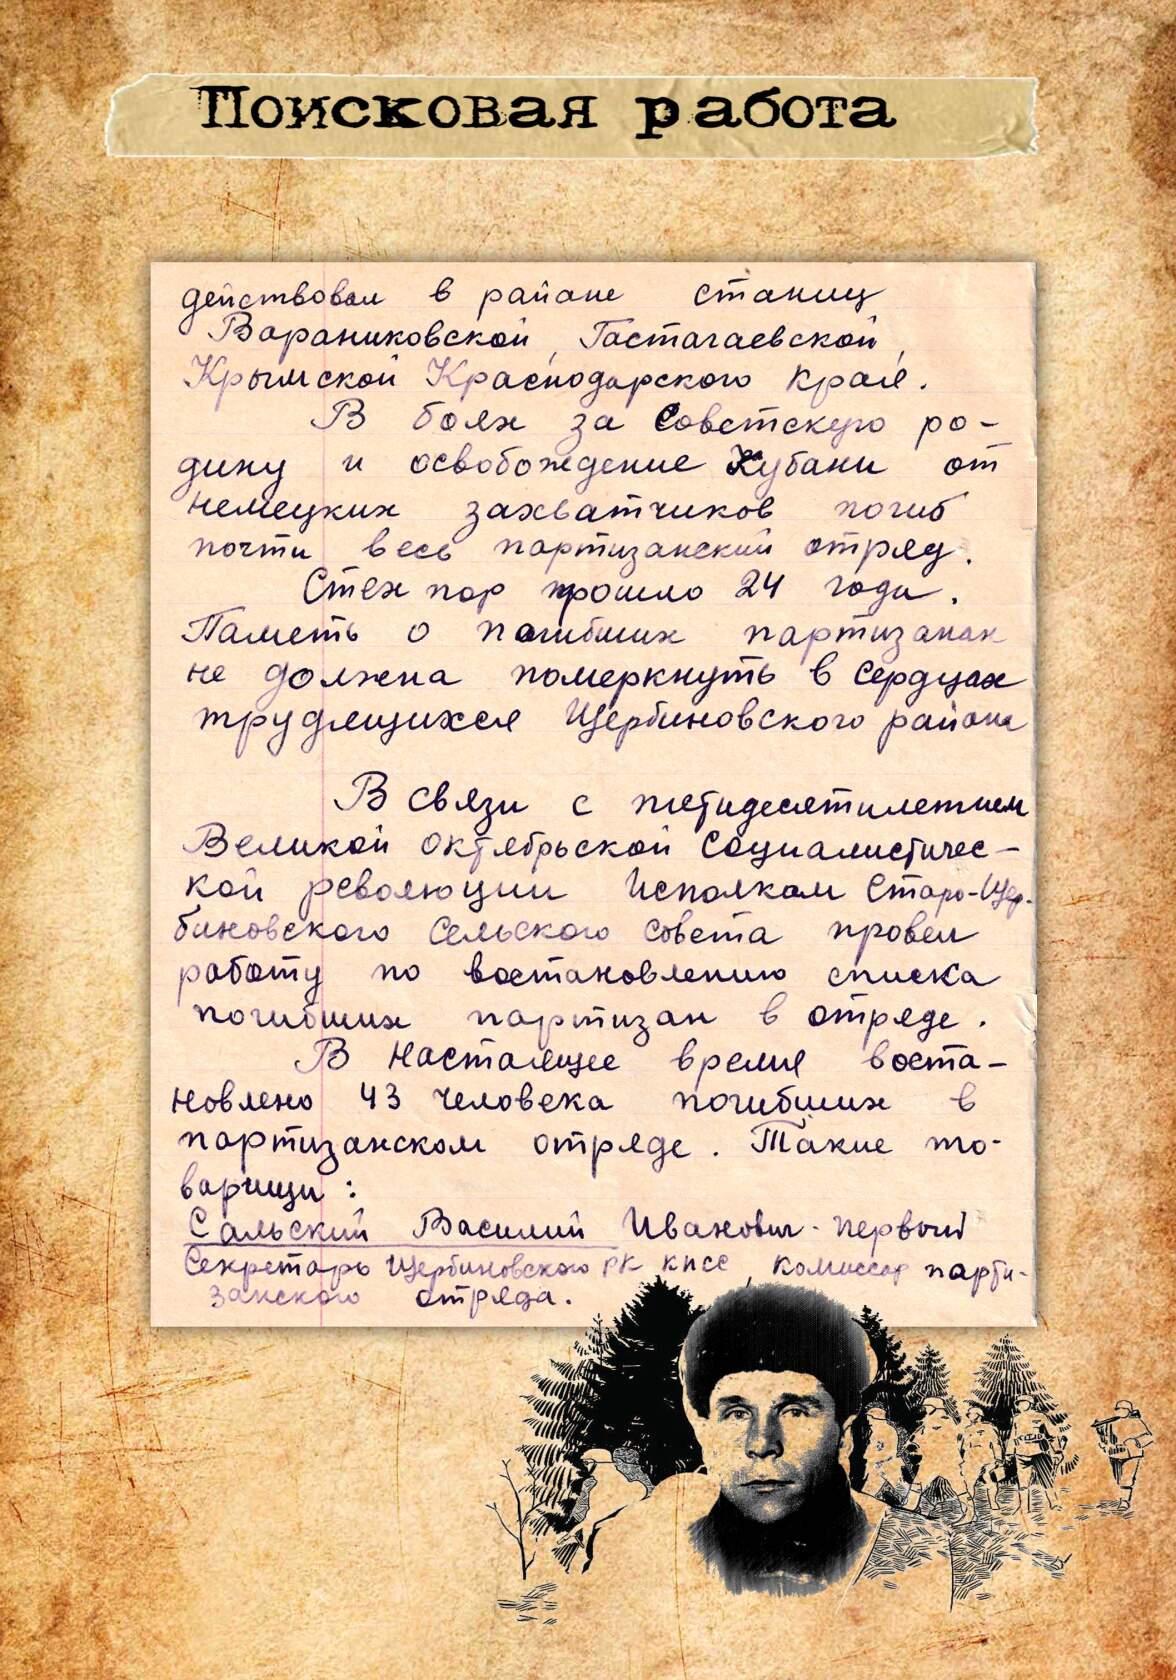 Поисковая работа
действовал в районе станиц
Вараниковской, Гастагаевской,
Крымской Краснодарского края.
В боях за Советскую ро-
дину и освобождение Кубани от
немецких захватчиков погиб
почти весь партизанский отряд.
С тех пор прошло 24 года.
Память о погибших партизанах
не должна померкнуть в сердцах
трудящихся Щербиновского района
В связи с пятидесятилетием
Великой Октябрьской Социалистичес-
кой революции Исполком Старо-Щер-
биновского Сельского Совета провел
работу по востановлению списка
погибших партизан в отряде.
В настоящее время воста-
новлено 43 человека погибших в
партизанском отряде. Такие то-
варищи:
Сальский Василий Иванович - первый
Секретарь Щербиновского РК КПСС, комиссар парти-
занского отряда.